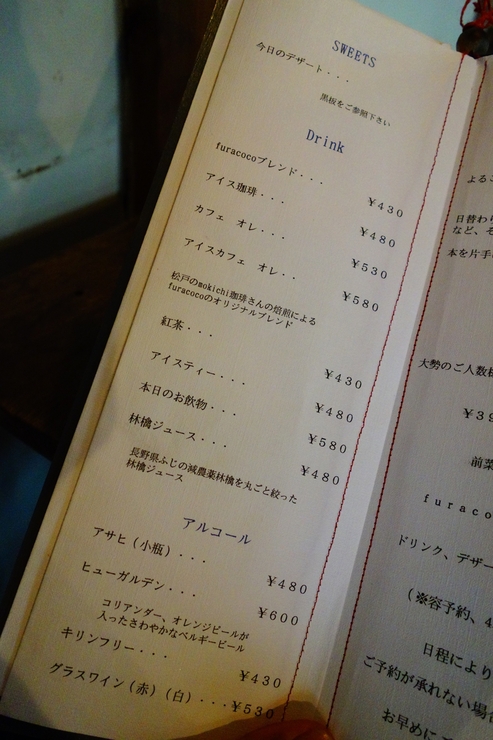 SWEETS
今日のデザート・・・
黒板をご参照下さい
Drink
furacocoブレンド・・・ ¥430
アイス珈琲・・・ ¥480
カフェ オレ・・・ ¥530
アイスカフェ オレ・・ ¥580
松戸のmokichi珈琲さんの焙煎による
furacocoのオリジナルブレンド
紅茶・・・ ¥430
アイスティー・・・ ¥480
本日のお飲物・・・ ¥580
林檎ジュース・・・ ¥480
長野県ふじの減農薬林檎を丸ごと絞った
林檎ジュース
アルコール
アサヒ(小瓶)・・・ ¥480
ヒューガルデン・・・ ¥600
コリアンダー、オレンジピールが
入ったさわやかなベルギービール
キリンフリー・・・ ¥430
グラスワイン(赤)(白)・・・¥530
よるご
日替わり
など、そ
本を片手に
大勢のご人数様
¥39
前菜
furaco
ドリンク、デザー
(※容予約、4
日程により
ご予約が承れない場合
お早めにご